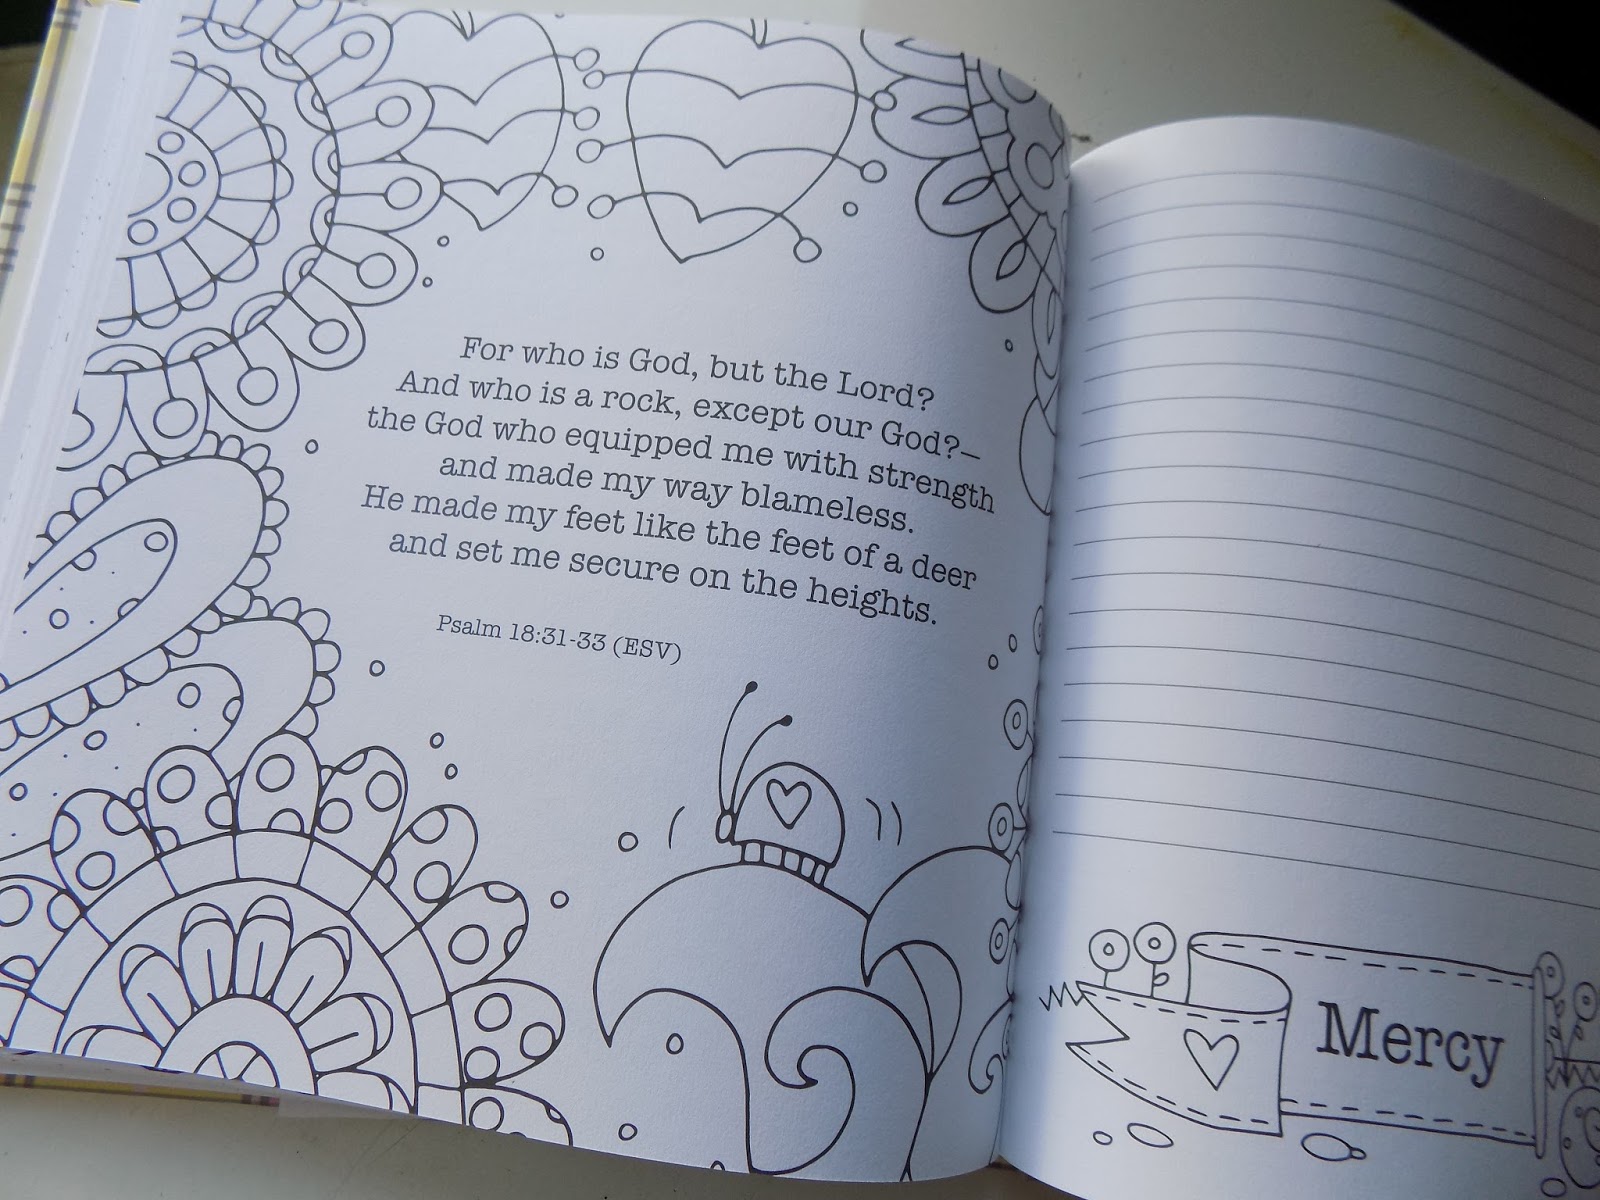 For who is God, but the Lord?
And who is a rock, except our God?–
the God who equipped me with strength
and made my way blameless.
He made my feet like the feet of a deer
and set me secure on the heights.
Psalm 18:31-33 (ESV)
Mercy